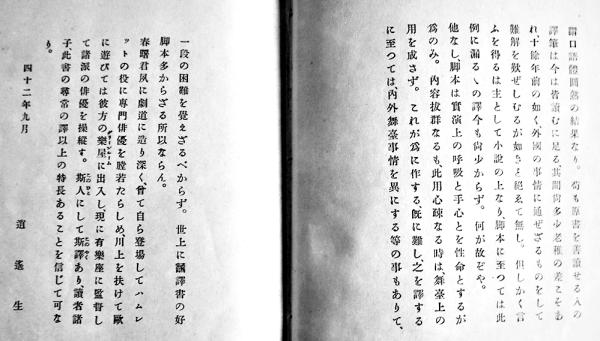 語口語體圓熟の結果なり。苟も原書を善讀せる人の
譯筆は今は皆讀むに足る、其間尙多少老穉の差こそあ
れ、十餘年前の如く、外國の事情に通ぜざるものをして
難解を歎ぜしむるが如きは絕えて無し。但しかく言
ふを得るは主として小說の上なり、脚本に至つては此
例に漏るゝの譯今も尙少からず。何が故ぞや。
他なし、脚本は實演上の呼吸と手心とを性命とするが
爲のみ。內容拔群なるも、此用心疎なる時は、舞臺上の
用を成さず。これが爲に作する、旣に難し、之を譯する
に至つては、內外舞臺事情を異にする等の事もありて、
一段の困難を覺えざるべからず。世上に飜譯書の好
脚本多からざる所以ならん。
春曙君夙に劇道に造り深く、曾て自ら登場してハムレ
ットの役に專門俳優を瞠若たらしめ、川上を扶けて歐
に遊びては彼方の樂屋に出入し、現に有樂座に監督し
て諸派の俳優を操縱す。斯人にして斯譯あり、讀者諸
子、此書の尋常の譯以上の特長あることを信じて可な
り。
四十二年九月
逍遙生